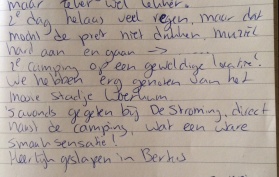 maar lever wel lekker.
2e dag helaas veel regen, maar dat
mocht de pret niet drukken, muziek
hard aan en gaan →
2e camping op een geweldige locatie!
we hebben erg genoten van het
mooie stadje
s'avonds gegeten bij De Stroming, direct
naast de camping, wat een ware
smaaksensatie!
Heerlijk geslapen in Bertus